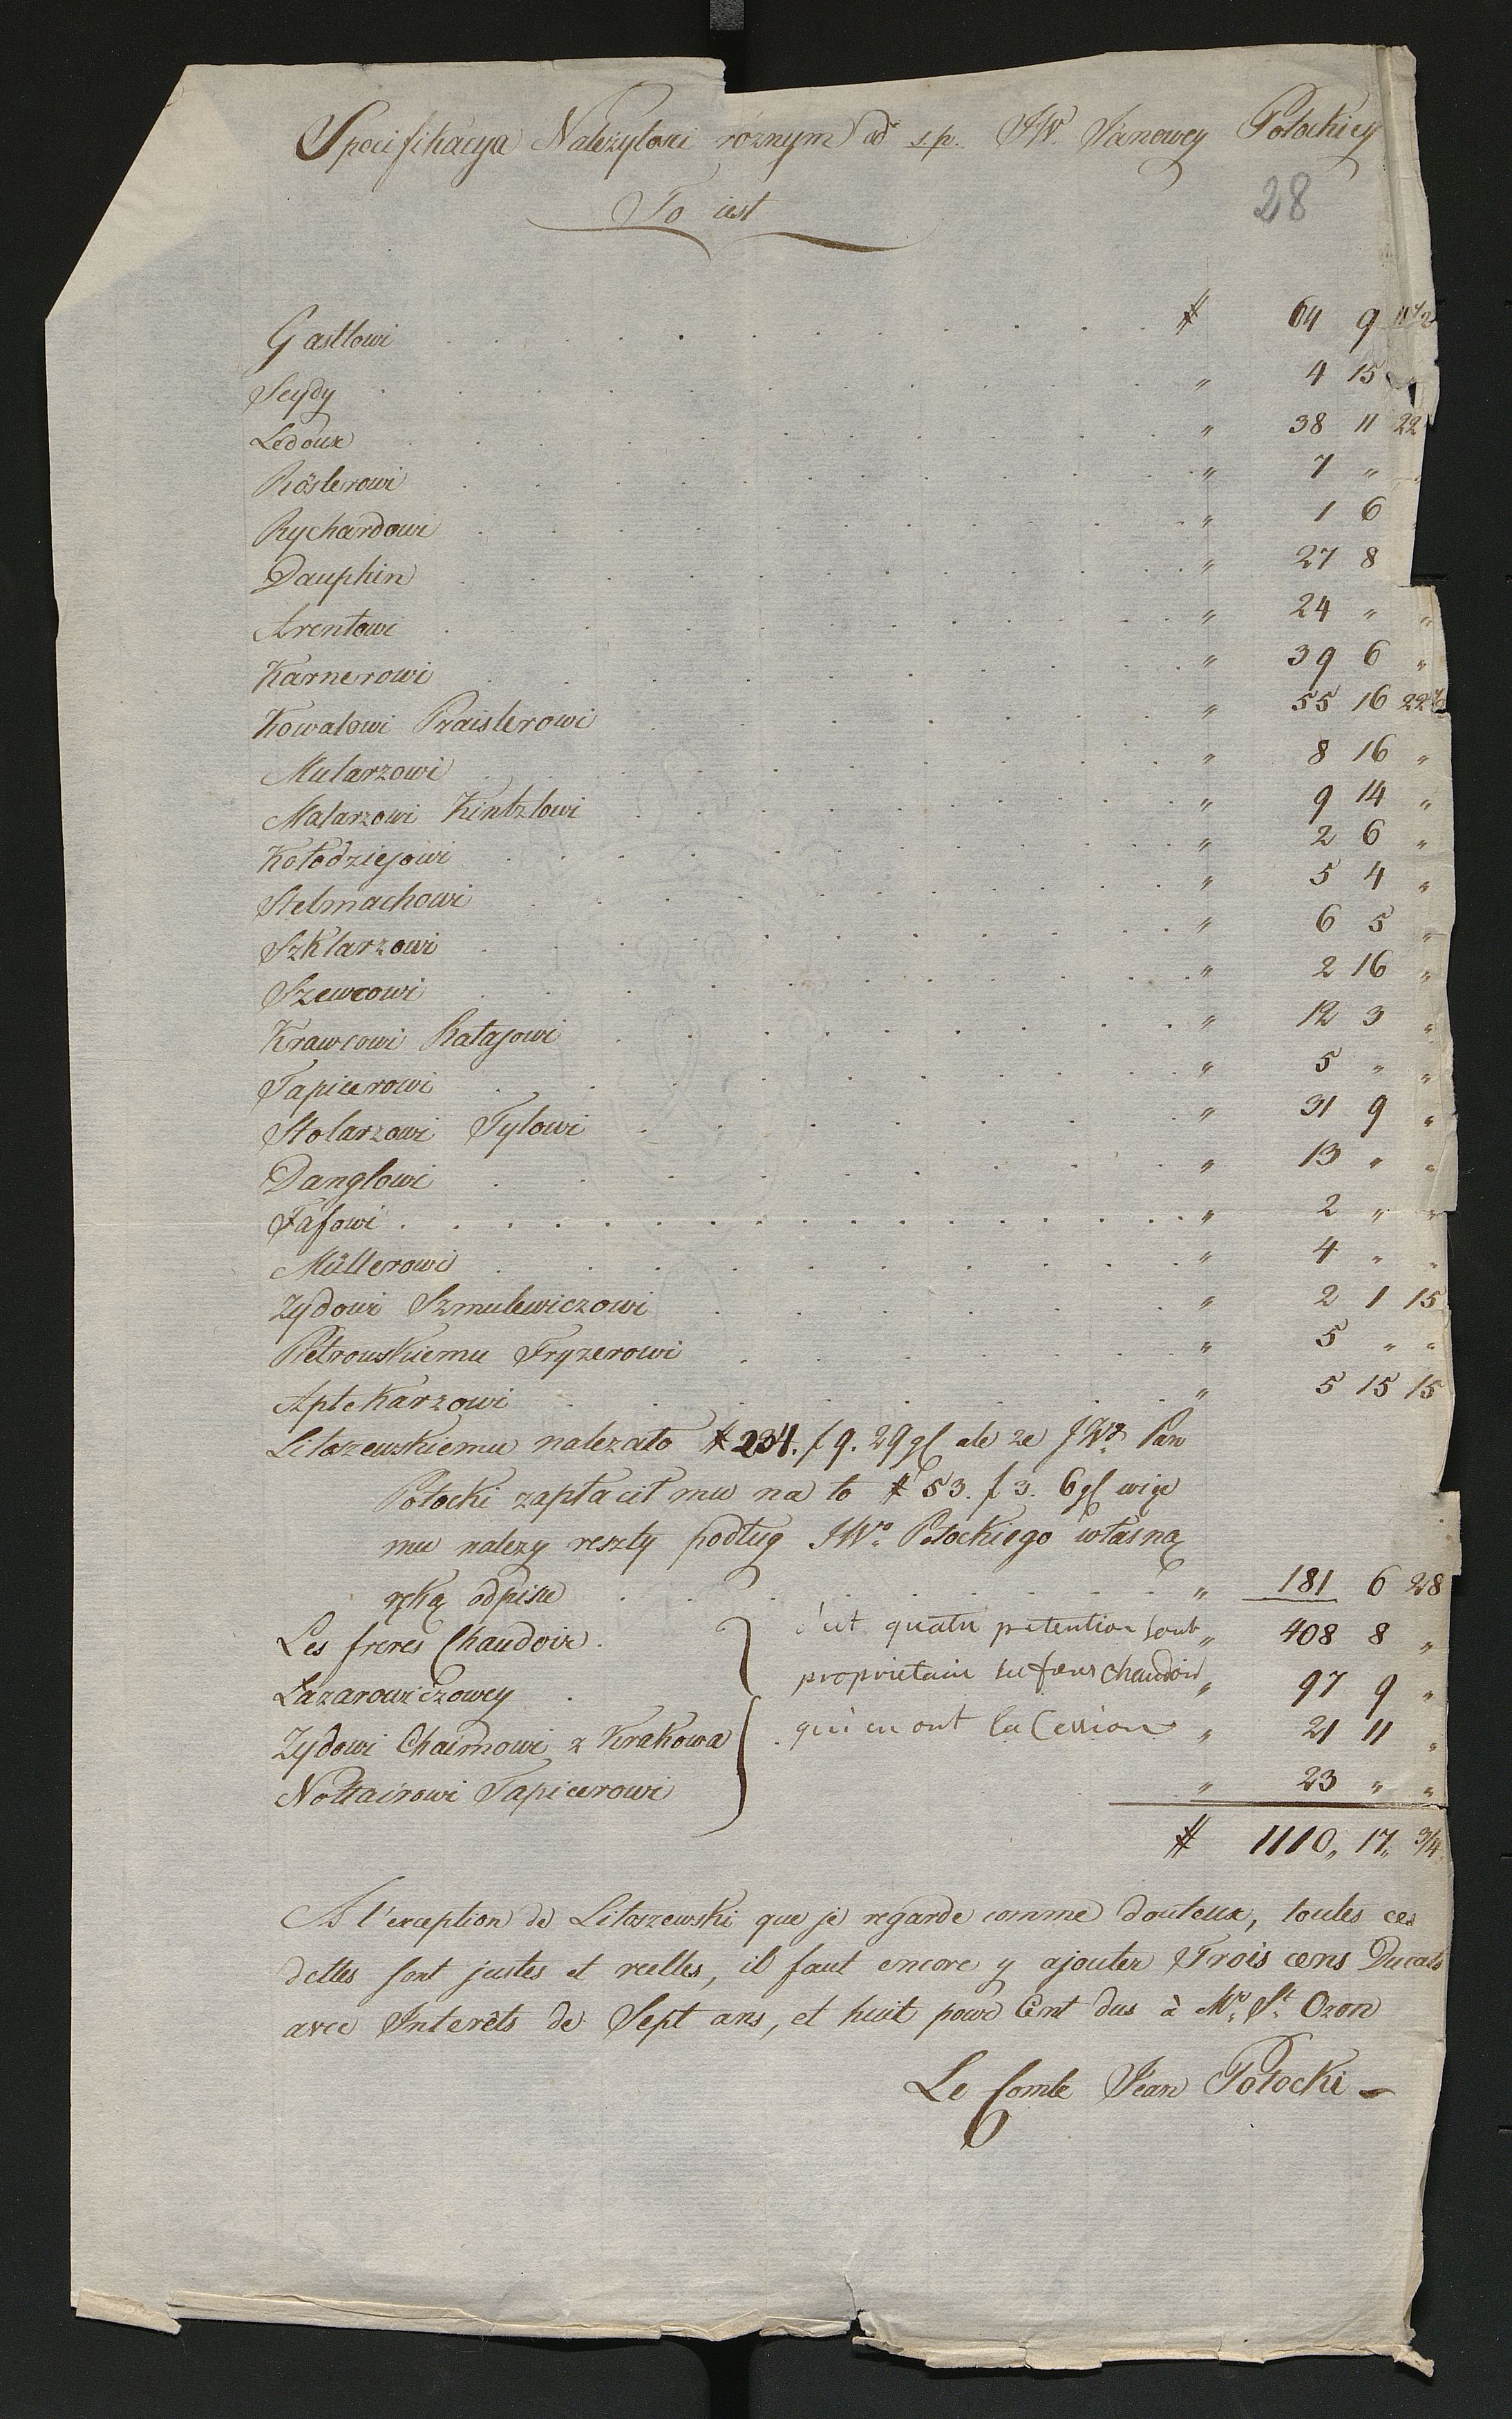 Specifikacya Należytości roznym od s.p. JW. Janowey Potockiey
28
To iest
Gastlowi # 64 9 11 1/2
Seydy " 4 15
Ledoux " 38 11 22
Röslerowi " 7 "
Rychardowi " 1 6
Dauphin " 27 8
Arentowi " 24 " "
Karnerowi " 39 6 "
Kowalowi Praislerowi " 55 16 22
Mularzowi " 8 16 "
Malarzowi Kintzlowi " 9 14 "
Kołodziejowi " 2 6 "
Stelmachowi " 5 4 "
Szklarzowi " 6 5 "
Szewcowi " 2 16 "
Krawcowi Ratajowi " 12 3 "
Tapicerowi " 5 " "
Stolarzowi Tylowi " 31 9 "
Danglowi " 13 " "
Fafowi " 2 " "
Müllerowi " 4 " "
Zydowi Szmulewiczowi " 2 1 15
Pietrowskiemu Fryzerowi " 5 " "
Aptekarzowi " 5 15 15
Litoszewskiemu należało # 234. f 9. 29 gl ale ze JWo Pan
Potocki zapłacił mu na to # 53. f 3. 6 gl więc
mu nalezy reszty podług JWo Potockiego własną
ręką odpisu " 181 6 28
Les freres Chaudoir. quatre pretention sont " 408 8 "
Lazarowiczowey proprietair Chaudoir " 97 9 "
Zydowi Chaimowi z Krakowa qui en ont la Cession " 21 11 "
Noltairowi Tapicerowi " 23 " "
# 1110,, 17,, 3/4
A l'exception de Litoszewski que je regarde comme douteux, toutes ces
dettes sont justes et reelles, il faut encore y ajouter Trois cens Ducats
avec Interêts de Sept ans, et huit pour Cent dus à Mr. St. Ozon
Le Comte Jean Potocki